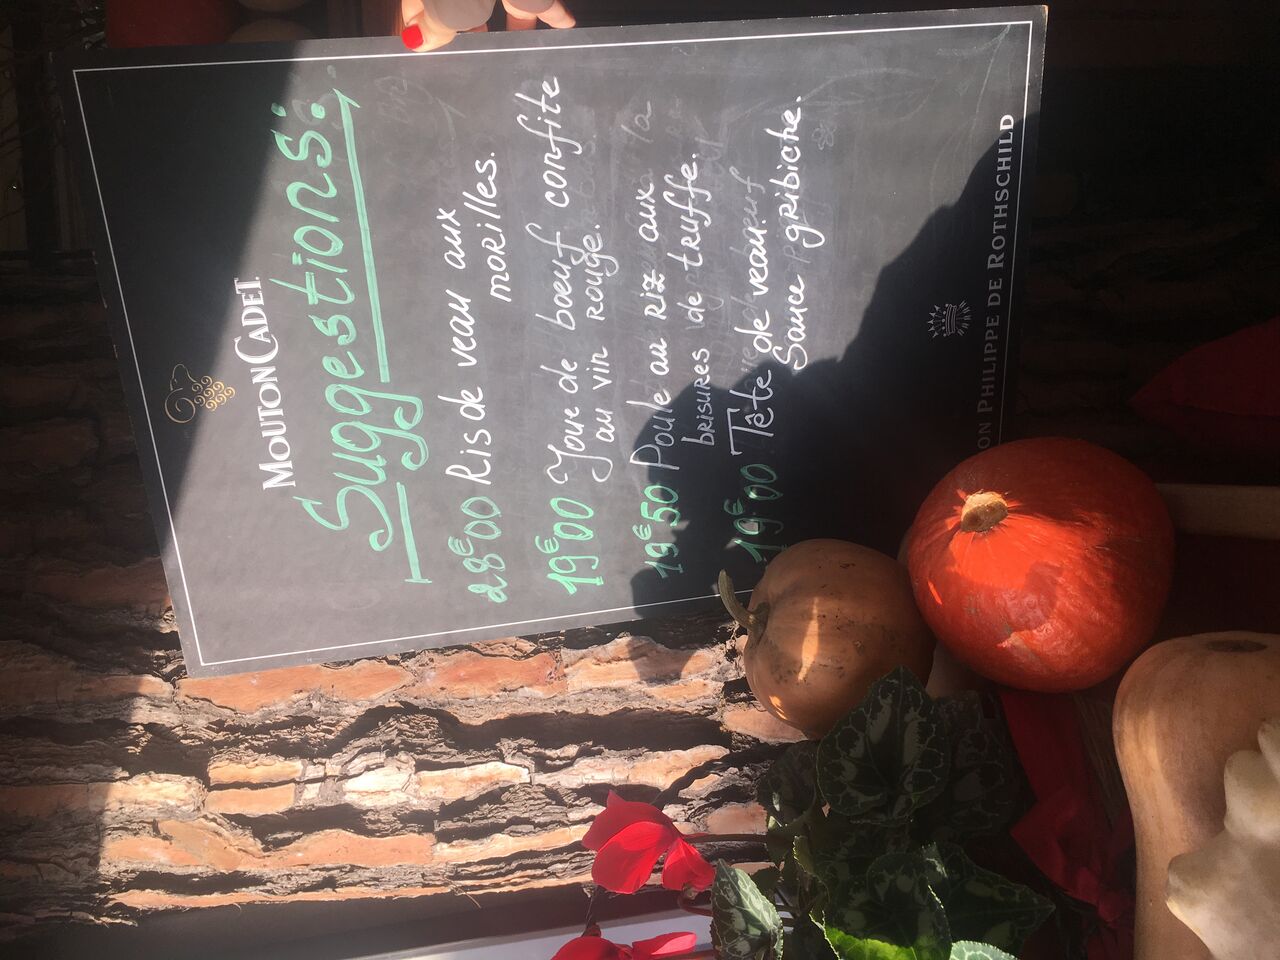 MOUTON CADET
Suggestions:
28€00 Ris de veau aux
morilles.
19€00 Joue de boeuf confite
au vin rouge.
19€50 Poule au riz aux
brisures de truffe.
19€00 Tête de veau.
Sauce gribiche.
PHILIPPE DE ROTHSCHILD